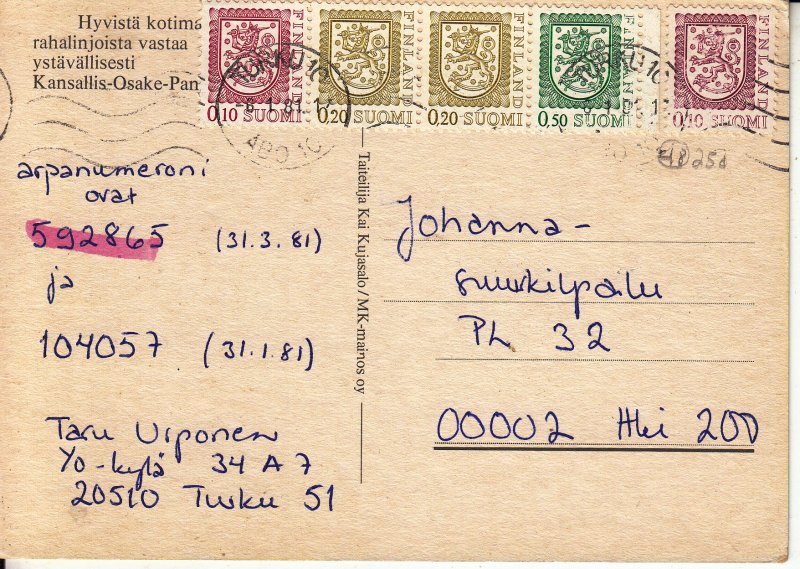 Hyvistä kotima
rahalinjoista vastaa
ystävällisesti
Kansallis-Osake-Pan
FINLAND
0,10 SUOMI
FINLAND
0,20 SUOMI
FINLAND
0,20 SUOMI
FINLAND
0,50 SUOMI
FINLAND
0,10
TURKU 10
-8.1.81.17
ÅBO 10
TURKU 10
arpanumeroni
ovat
592865 (31.3.81)
ja
104057 (31.1.81)
Taru Urponen
Yo-kylä 34 A 7
20510 Turku 51
Taiteilija Kai Kujasalo/MK-mainos oy
Johanna-
suurkilpailu
PL 32
00002 Hki 200